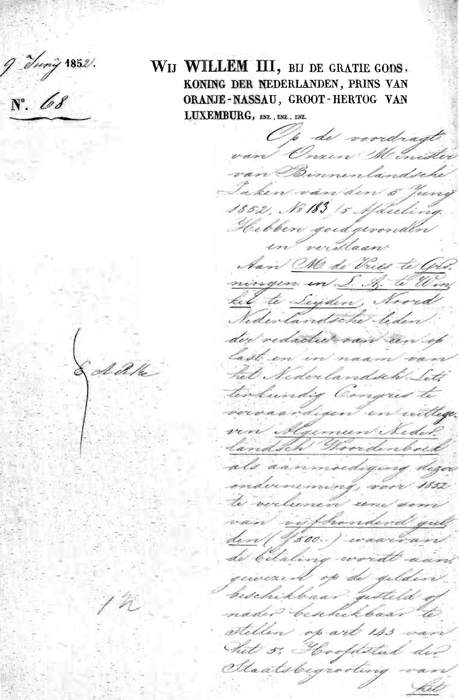 9 Junij 1852.
Nº. 68
WIJ WILLEM III, BIJ DE GRATIE GODS,
KONING DER NEDERLANDEN, PRINS VAN
ORANJE-NASSAU, GROOT-HERTOG VAN
LUXEMBURG, ENZ., ENZ., ENZ.
Op de voordragt
van Onzen Minister
van Binnenlandsche
Zaken van den 5 Junij
1852, No 183, 5e Afdeeling
Hebben goedgevonden
en verstaan
Aan M. de Vries te Gro-
ningen en L. A. te Win-
kel te Leyden, Noord
Nederlandsche leden
der redactie van een op
last en in naam van
het Nederlandsch Let-
terkundig Congres te
vervaardigen en uittege-
ven Algemeen Neder-
landsch Woordenboek
als aanmoediging dezer
onderneming, voor 1852
te verleenen eene som
van vijfhonderd gul-
den (ƒ500.-) waarvan
de betaling wordt aan-
gewezen op de gelden
beschikbaar gesteld of
nader beschikbaar te
stellen op art 143 van
het 5e Hoofdstuk der
Staatsbegrooting van